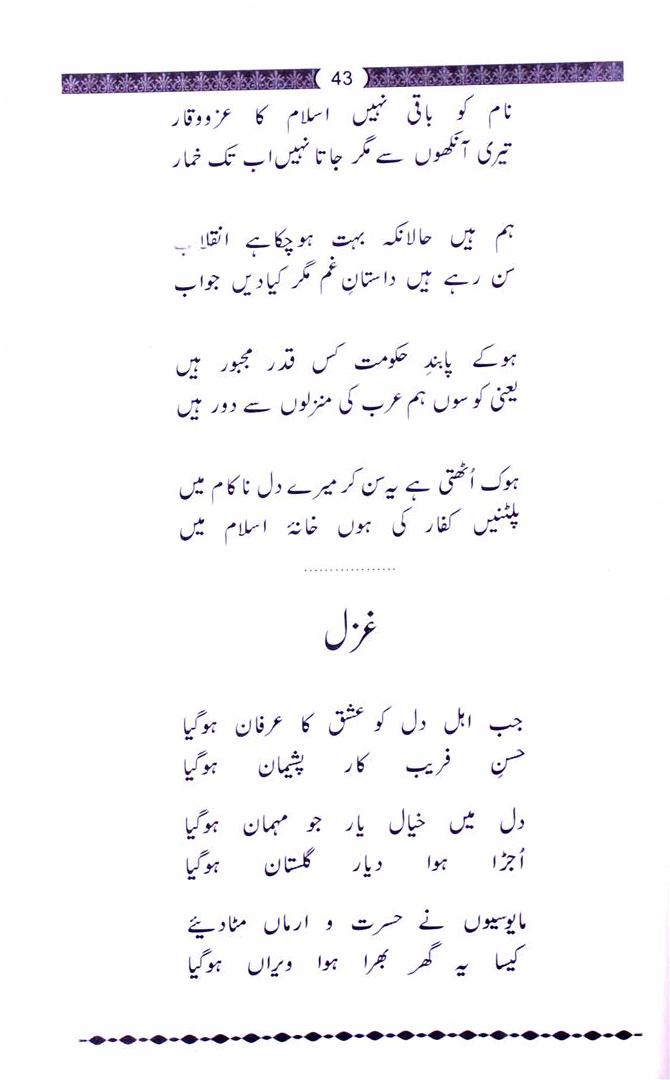 43
نام کو باقی نہیں اسلام کا عزووقار
تیری آنکھوں سے مگر جاتا نہیں اب تک خمار
ہم ہیں حالانکہ بہت ہوچکاہے انقلاب
سن رہے ہیں داستانِ غم مگر کیادیں جواب
ہوکے پابندِ حکومت کس قدر مجبور ہیں
یعنی کوسوں ہم عرب کی منزلوں سے دور ہیں
ہوک اُٹھتی ہے یہ سن کر میرے دل ناکام میں
پلٹنیں کفار کی ہوں خانۂ اسلام میں
..................
غزل
جب اہل دل کو عشق کا عرفان ہوگیا
حسنِ فریب کار پشیمان ہوگیا
دل میں خیال یار جو مہمان ہوگیا
اُجڑا ہوا دیار گلستان ہوگیا
مایوسیوں نے حسرت و ارماں مٹادیئے
کیسا یہ گھر بھرا ہوا ویراں ہوگیا